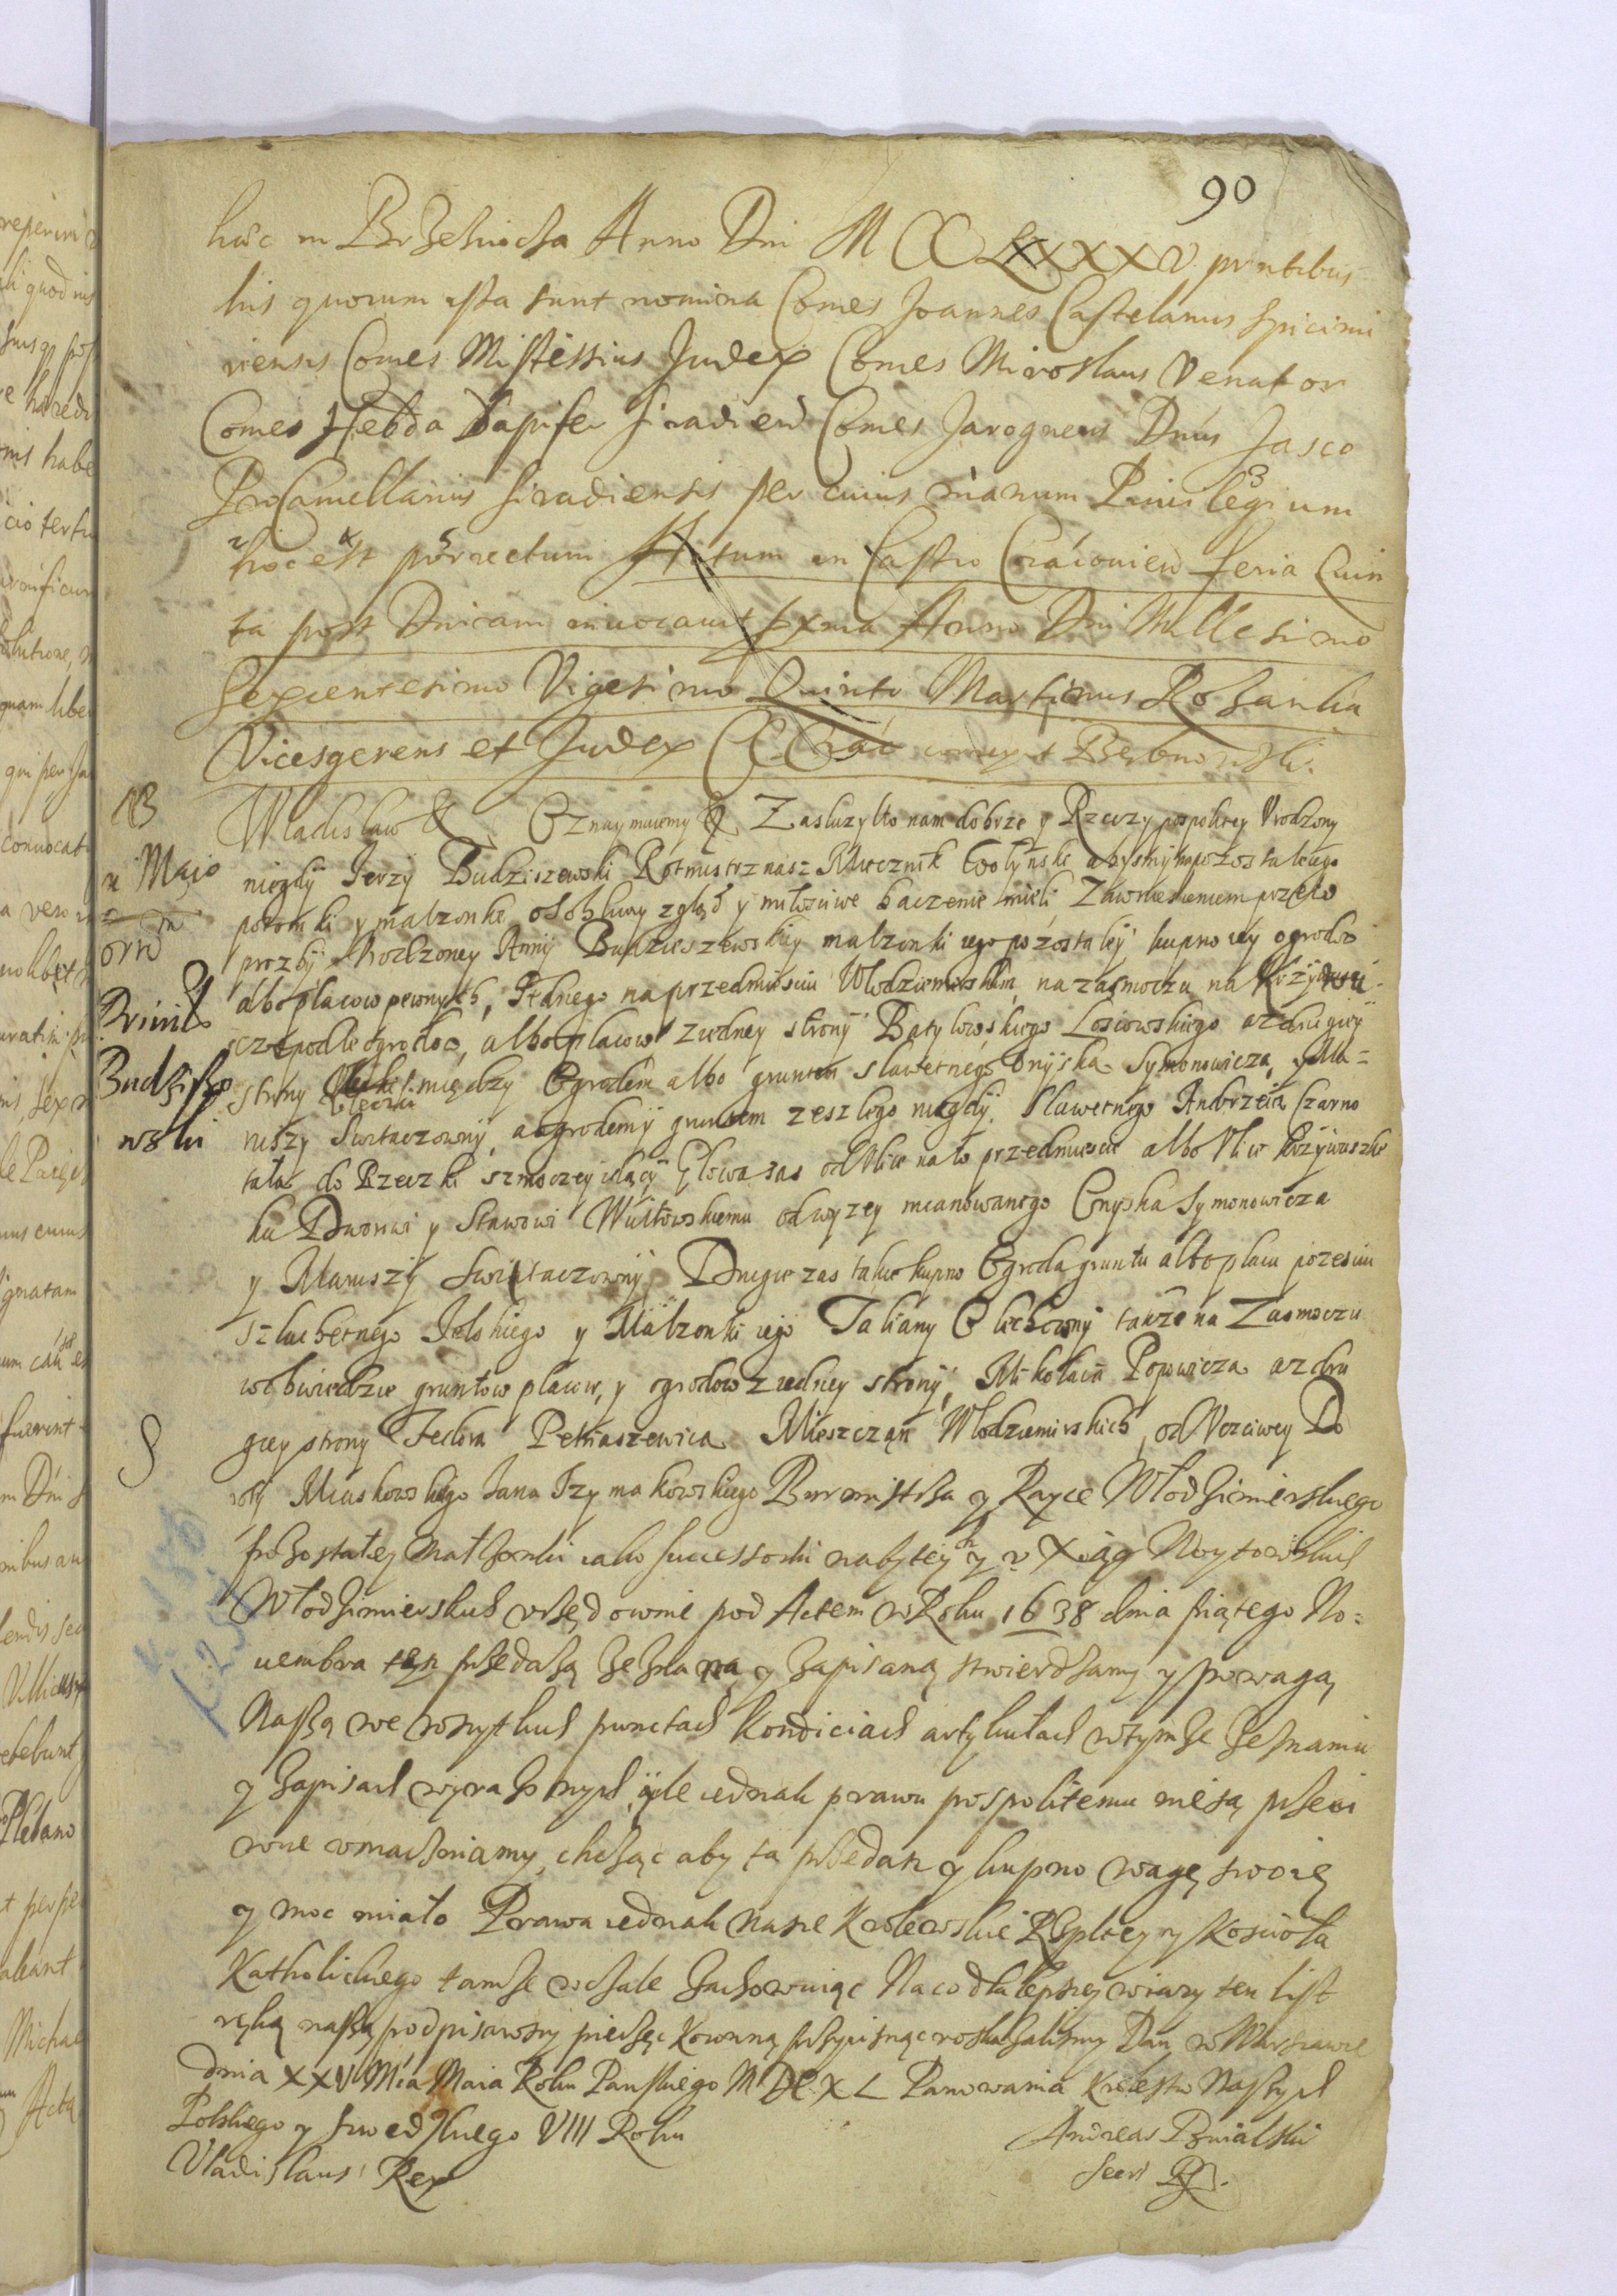 90
huic in Brzeznicza Anno Dni M CC LXXXXV pntibus
his quorum ista sunt nomina Comes Joannes Castelanus Spicimi
riensis Comes Mistissius Judex Comes Miroslaus Venator
Comes Hebda Dapifer Siradien Comes Jarogneus Dnus Jasco
ProCancellarius Siradiensis per cuius manum Priuilegium
hoc est porrectum Actum in Castro Cracouien feria Quin
ta post Dnicam inuocauit pxma Anno Dni Millesimo
Sexcentesimo Vigesimo Quinto Martinus Rozanka
Vicesgerens et Judex C Crac correxit Bębnowski
NB
Wladislaw & Oznaymuiemy & Zasluzyl to nam dobrze y Rzeczypospolitey Vrodzony
niegdy Jerzy Budziszewski Rotmistrz nasz Miecznik Wołyński abysmy na pozostałego
potomki y malzonke osobliwy zgląd y miłosciwe baczenie mieli Zawniesieniem przeto
prozby Vrodzoney Anny Budziszewskiey malzonki iego pozostałey kupno iey ogrodow
albo placow pewnych, Jednego na przedmiesciu Włodzimirskim na zasmoczu na Krzywusi
cze podle ogrodow, albo placow z iedney strony Batyłowskiego Losiowskiego a z drugiey
strony między Ogrodem albo gruntem sławetnego Onyska Symonowicza, y Ma=
ruszy Switaczowny, a ogrodemy gruntem zeszlego niegdy Slawetnego Andrzeia Czarno
tała do Rzeczki szmoczey idący Głowa zas od Vlice na to przedmiescie albo Vlice Krzywuszki
ku Dworowi y Stawowi Wułtowskiemu od wyzey mianowanego Onyska Symonowicza
y Maruszy Switaczowny, Drugie zas takie kupno Ogroda gruntu albo placu przesiu
szlachetnego Jelskiego y Małzonki iego Taliany Olechowny takze na Zasmoczu
w obwiedzie gruntow placow, y ogrodow z iedney strony, Mikołaia Popowicza a z dru
giey strony Fedora Petraszewica Mieszczan Włodzimirskich, od Vczciwey Do
roty Miaskowskiego Jana Szymakowskiego Burmistrza y Rayce Włodzimierskiego
pozostałey małzonki iako successorki nabytey y z Xiąg Woytowskich
Włodzimierskich vrzędownie pod Actem w Roku 1638 dnia piątego No=
uembra tę przedazą zeznaną y zapisaną stwierdzamy y powagą
Naszą we wszytkich punctach Kondiciach artykułach w tymze zeznaniu
y zapisach wyrazonych, ile iednak prawu pospolitemu nie są przeci
wne vmacniamy, chcząc aby ta przedaz y kupno wagę swoię
y moc miało Prawa iednak nasze Krolewskie Rzpltey y Koscioła
Katholickiego tamze wcale zachowuiąc Na co dla lepszey wiary ten list
ręką naszą podpisawszy pieczęc Koronną przycisnąc roskazalismy Dan w Warszawie
dnia XXV Mca Maia Roku Panskiego MDCXL Panowania Krolestw Naszych
Polskiego y Szwedzkiego VIII Roku
Vladislaus Rex
Andreas
Secr
Maio
Budziszo
wski